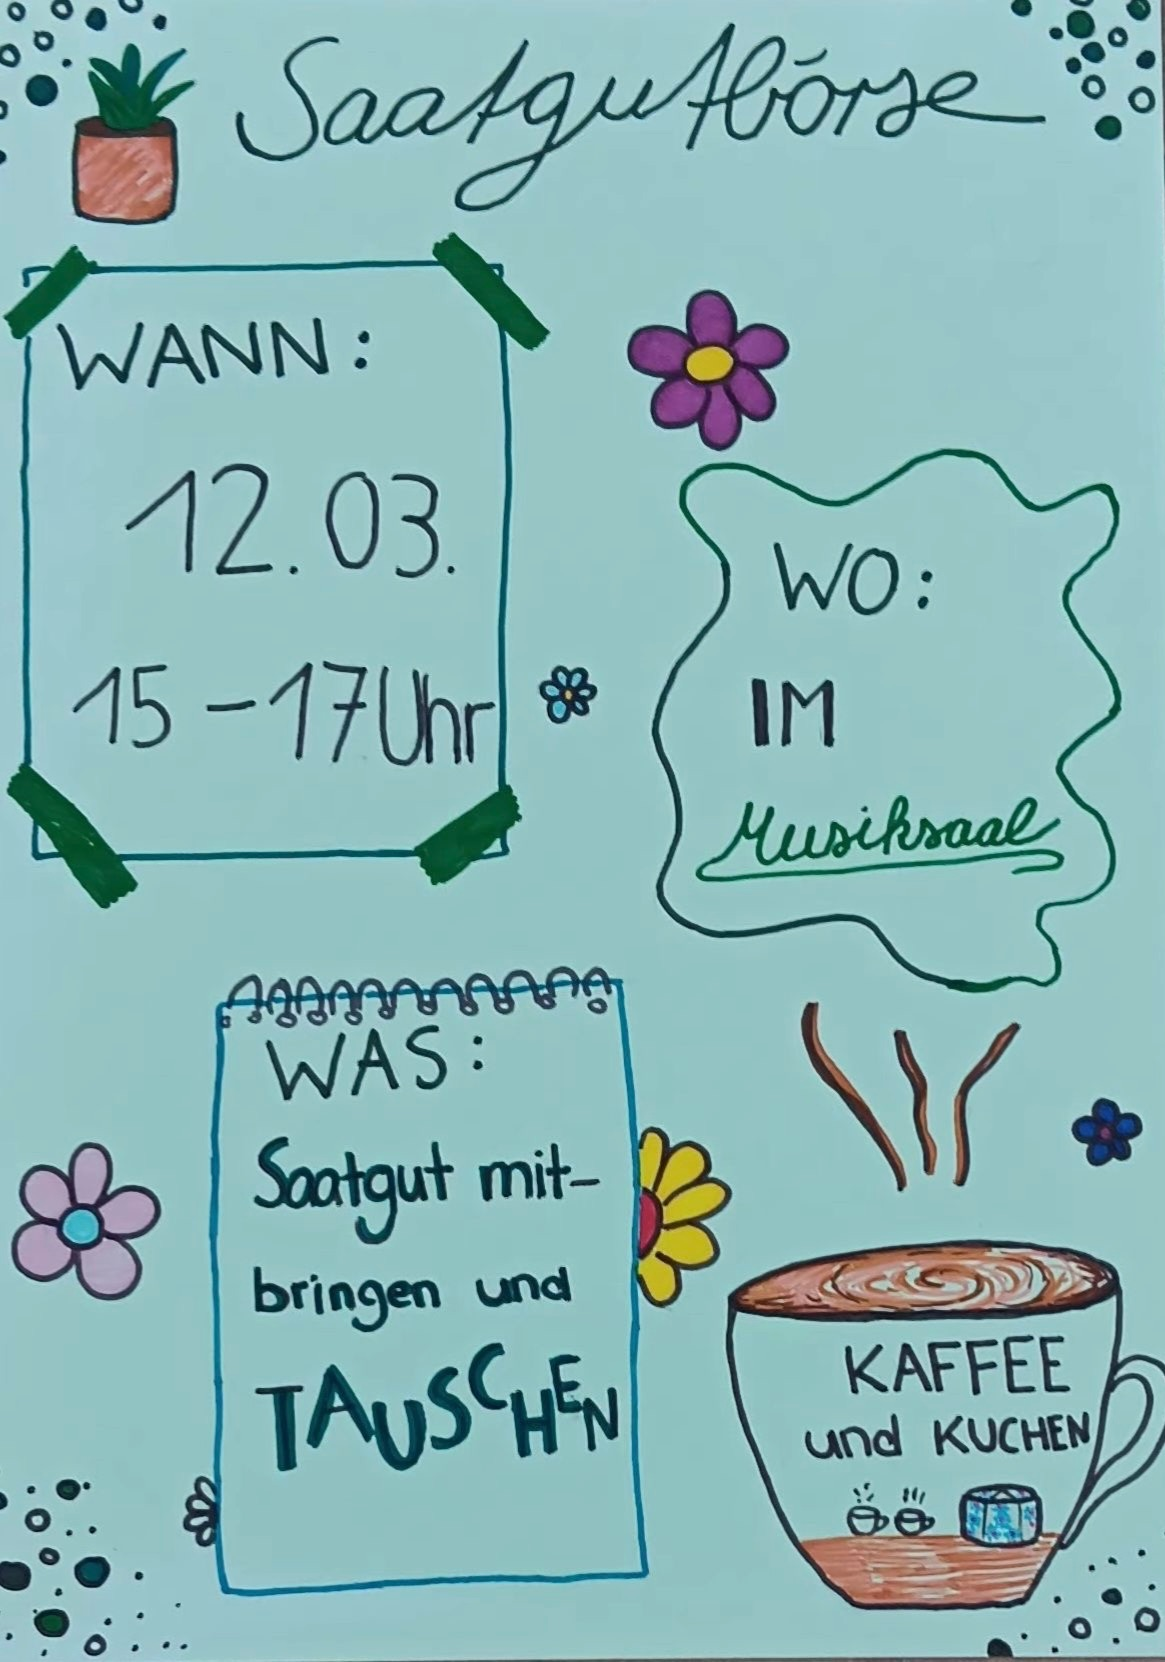 Saatgutbörse
WANN:
12.03.
15-17Uhr
WO:
IM
Musiksaal
WAS:
Saatgut mit-
bringen und
TAUSCHEN
KAFFEE
und KUCHEN